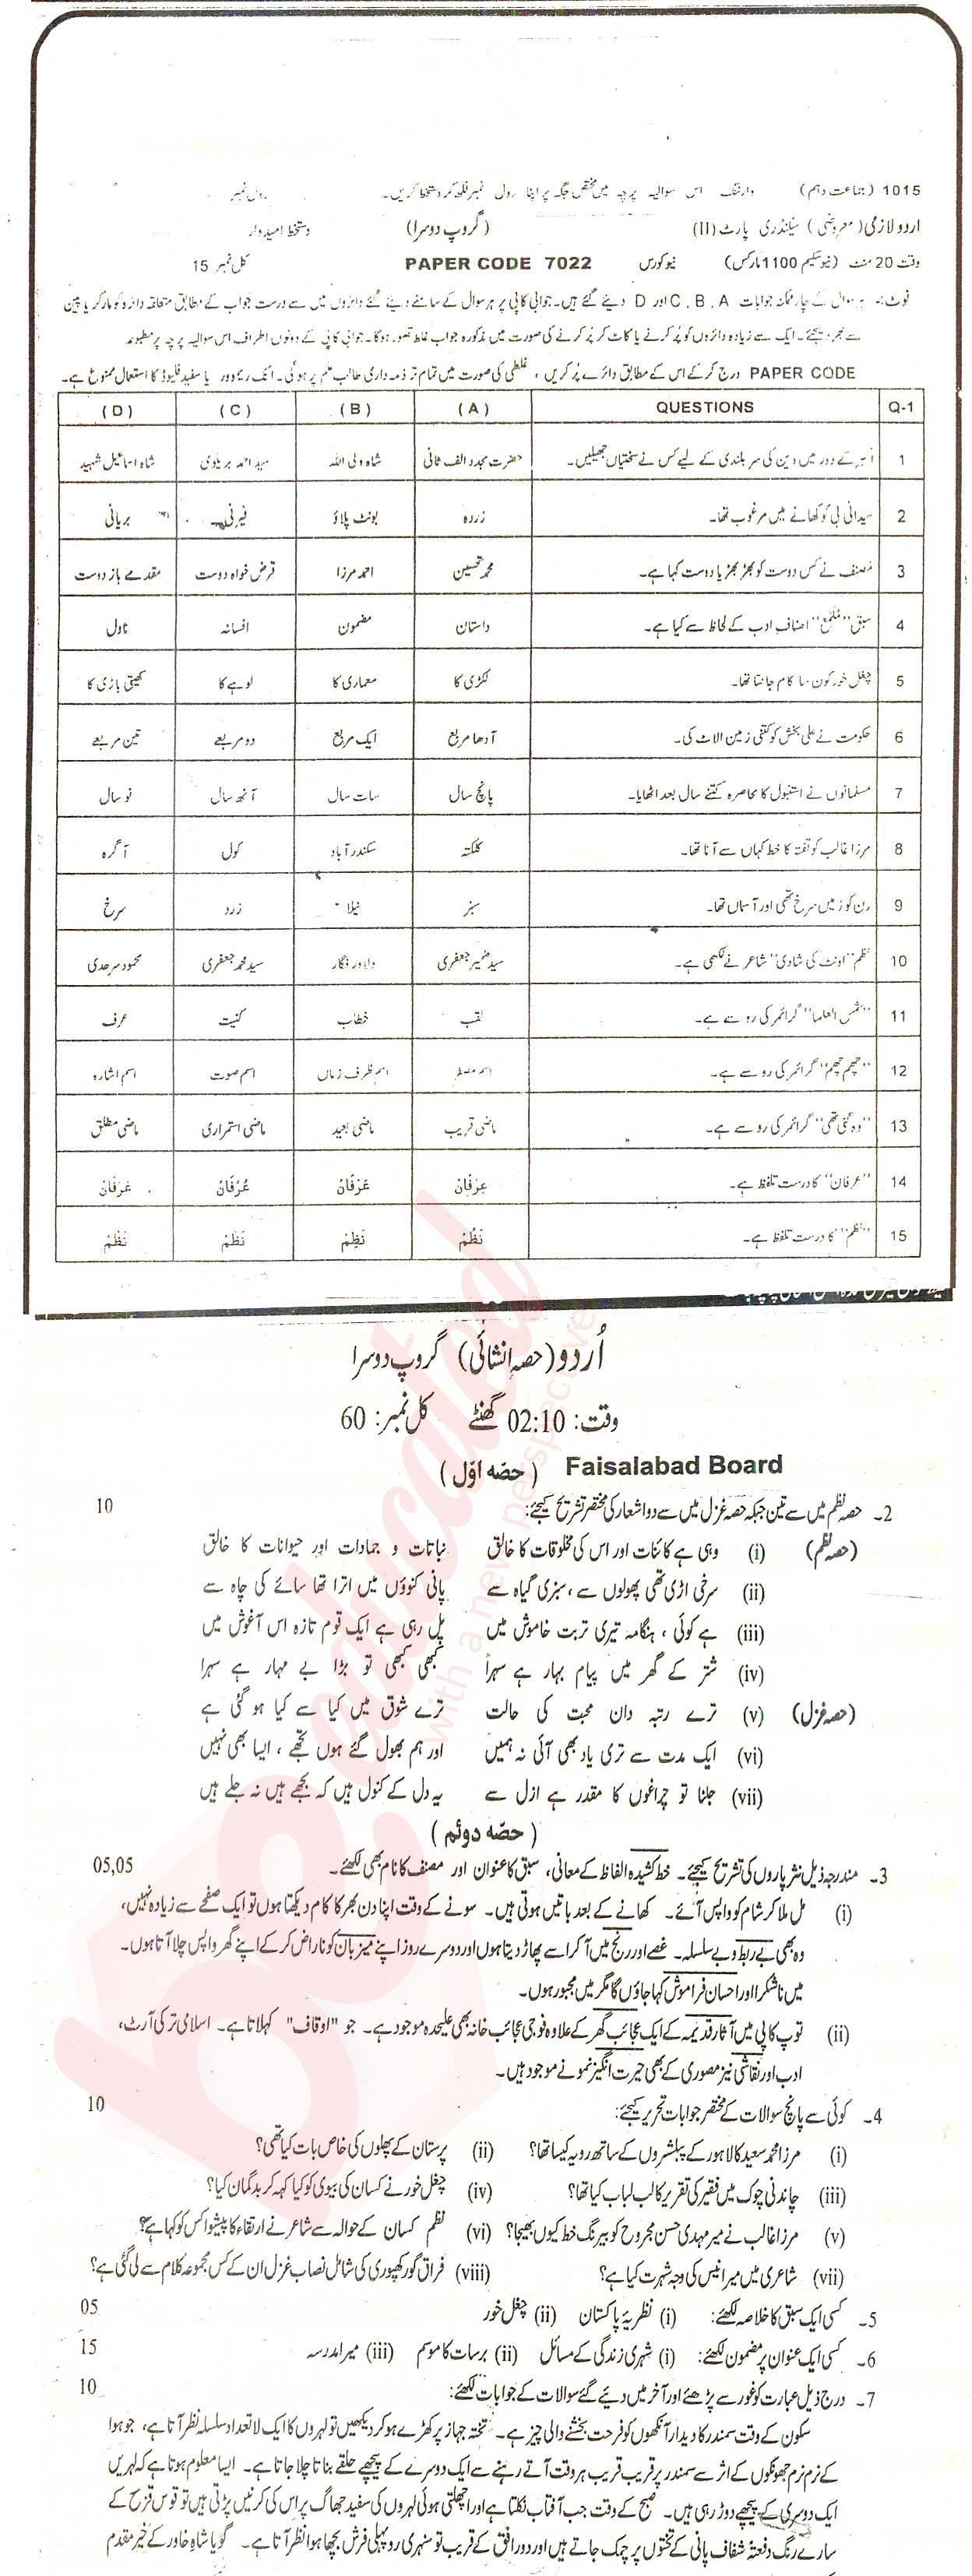 1015 (جماعت دہم) وارننگ اس سوالیہ پرچہ میں مختص جگہ پر اپنا رول نمبر لکھ کر دستخط کریں۔ رول نمبر
اردو لازمی (معروضی) سیکنڈری پارٹ (II) (گروپ دوسرا) دستخط امیدوار
وقت 20 منٹ (نیو سکیم 1100 مارکس) نیو کورس PAPER CODE 7022 کل نمبر 15
نوٹ:۔ ہر سوال کے چار ممکنہ جوابات A ، B ، C اور D دیئے گئے ہیں۔ جوابی کاپی پر ہر سوال کے سامنے دیئے گئے دائروں میں سے درست جواب کے مطابق متعلقہ دائرہ کو مارکر یا پین
سے بھر دیجئے۔ ایک سے زیادہ دائروں کو پُر کرنے یا کاٹ کر پُر کرنے کی صورت میں مذکورہ جواب غلط تصور ہوگا۔ جوابی کاپی کے دونوں اطراف اس سوالیہ پرچہ پر مطبوعہ
PAPER CODE درج کرکے اس کے مطابق دائرے پُر کریں ، غلطی کی صورت میں تمام تر ذمہ داری طالب علم پر ہوگی۔ انک ریموور یا سفید فلیوڈ کا استعمال ممنوع ہے۔
Q-1 QUESTIONS (A) (B) (C) (D)
1 کے دور میں دین کی سربلندی کے لیے کس نے سختیاں جھیلیں۔ حضرت مجدد الف ثانی شاہ ولی اللہ سید احمد بریلوی شاہ اسماعیل شہید
2 سیدانی بی کو کھانے میں مرغوب تھا۔ زردہ بونٹ پلاؤ فیرنی بریانی
3 مصنف نے کس دوست کو بھڑبھڑیا دوست کہا ہے۔ محمد تحسین احمد مرزا قرض خواہ دوست مقدمے باز دوست
4 سبق "مُلمّع" اصناف ادب کے لحاظ سے کیا ہے۔ داستان مضمون افسانہ ناول
5 چغل خور کون سا کام جانتا تھا۔ لکڑی کا معماری کا لوہے کا کھیتی باڑی کا
6 حکومت نے علی بخش کو کتنی زمین الاٹ کی۔ آدھا مربع ایک مربع دو مربعے تین مربعے
7 مسلمانوں نے استنبول کا محاصرہ کتنے سال بعد اٹھایا۔ پانچ سال سات سال آٹھ سال نو سال
8 مرزا غالب کو تفتہ کا خط کہاں سے آنا تھا۔ کلکتہ سکندر آباد کول آگرہ
9 رن کو زمیں سرخ تھی اور آسماں تھا۔ سبز نیلا زرد سرخ
10 نظم "اونٹ کی شادی" شاعر نے لکھی ہے۔ سید ضمیر جعفری دلاور فگار سید محمد جعفری محمود سرحدی
11 "شمس العلما" گرائمر کی رو سے ہے۔ لقب خطاب کنیت عرف
12 "چھم چھم" گرائمر کی رو سے ہے۔ اسم مصغر اسم ظرف زماں اسم صوت اسم اشارہ
13 "وہ گئی تھی" گرائمر کی رو سے ہے۔ ماضی قریب ماضی بعید ماضی استمراری ماضی مطلق
14 "عرفان" کا درست تلفظ ہے۔ عِرْفَانْ عَرْفَانْ عُرْفَانْ
15 "نظم" کا درست تلفظ ہے۔ نَظُمْ نَظِمْ نَظَمْ نَظْمْ
اُردو (حصہ انشائی) گروپ دوسرا
وقت: 02:10 گھنٹے کل نمبر: 60
Faisalabad Board (حصّہ اوّل)
2۔ حصہ نظم میں سے تین جبکہ حصہ غزل میں سے دو اشعار کی مختصر تشریح کیجئے: 10
(حصہ نظم) (i) وہی ہے کائنات اور اس کی مخلوقات کا خالق نباتات و جمادات اور حیوانات کا خالق
(ii) سرخی اڑی تھی پھولوں سے ، سبزی گیاہ سے پانی کنوؤں میں اترا تھا سائے کی چاہ سے
(iii) ہے کوئی ، ہنگامہ تیری تربت خاموش میں پل رہی ہے ایک قوم تازہ اس آغوش میں
(iv) شتر کے گھر میں پیام بہار ہے سہرا کبھی کبھی تو بڑا بے مہار ہے سہرا
(حصہ غزل) (v) ترے رتبہ دان محبت کی حالت ترے شوق میں کیا سے کیا ہو گئی ہے
(vi) ایک مدت سے تری یاد بھی آئی نہ ہمیں اور ہم بھول گئے ہوں تجھے ، ایسا بھی نہیں
(vii) جلنا تو چراغوں کا مقدر ہے ازل سے یہ دل کے کنول ہیں کہ بجھے ہیں نہ جلے ہیں
(حصّہ دوئم)
3۔ مندرجہ ذیل نثر پاروں کی تشریح کیجئے۔ خط کشیدہ الفاظ کے معانی، سبق کا عنوان اور مصنف کا نام بھی لکھئے۔ 05,05
(i) مل ملا کر شام کو واپس آئے۔ کھانے کے بعد باتیں ہوتی ہیں۔ سونے کے وقت اپنا دن بھر کا کام دیکھتا ہوں تو ایک صفحے سے زیادہ نہیں،
وہ بھی بے ربط و بے سلسلہ۔ غصے اور رنج میں آ کر اسے پھاڑ دیتا ہوں اور دوسرے روز اپنے میزبان کو ناراض کر کے اپنے گھر واپس چلا آتا ہوں۔
میں ناشکرا اور احسان فراموش کہا جاؤں گا مگر میں مجبور ہوں۔
(ii) توپ کاپی میں آثار قدیمہ کے ایک عجائب گھر کے علاوہ فوجی عجائب خانہ بھی علیحدہ موجود ہے۔ جو "اوقاف" کہلاتا ہے۔ اسلامی ترکی آرٹ،
ادب اور نقاشی نیز مصوری کے بھی حیرت انگیز نمونے موجود ہیں۔
4۔ کوئی سے پانچ سوالات کے مختصر جوابات تحریر کیجئے: 10
(i) مرزا محمد سعید کا لاہور کے پبلشروں کے ساتھ رویہ کیسا تھا؟ (ii) پرستان کے پھلوں کی خاص بات کیا تھی؟
(iii) چاندنی چوک میں فقیر کی تقریر کا لب لباب کیا تھا؟ (iv) چغل خور نے کسان کی بیوی کو کیا کہہ کر بدگمان کیا؟
(v) مرزا غالب نے میر مہدی حسن مجروح کو بیرنگ خط کیوں بھیجا؟ (vi) نظم کسان کے حوالہ سے شاعر نے ارتقاء کا پیشوا کس کو کہا ہے؟
(vii) شاعری میں میر انیس کی وجہ شہرت کیا ہے؟ (viii) فراق گورکھپوری کی شامل نصاب غزل ان کے کس مجموعہ کلام سے لی گئی ہے؟
5۔ کسی ایک سبق کا خلاصہ لکھئے: (i) نظریۂ پاکستان (ii) چغل خور 05
6۔ کسی ایک عنوان پر مضمون لکھئے: (i) شہری زندگی کے مسائل (ii) برسات کا موسم (iii) میرا مدرسہ 15
7۔ درج ذیل عبارت کو غور سے پڑھئے اور آخر میں دیئے گئے سوالات کے جوابات لکھئے: 10
سکون کے وقت سمندر کا دیدار آنکھوں کو فرحت بخشنے والی چیز ہے۔ تختہ جہاز پر کھڑے ہو کر دیکھیں تو لہروں کا ایک لاتعداد سلسلہ نظر آتا ہے، جو ہوا
کے نرم نرم جھونکوں کے اثر سے سمندر پر قریب قریب ہر وقت آتے رہنے سے ایک دوسرے کے پیچھے حلقے بناتا چلا جاتا ہے۔ ایسا معلوم ہوتا ہے کہ لہریں
ایک دوسری کے پیچھے دوڑ رہی ہیں۔ صبح کے وقت جب آفتاب نکلتا ہے اور اچھلتی ہوئی لہروں کی سفید جھاگ پر اس کی کرنیں پڑتی ہیں تو قوس قزح کے
سارے رنگ دفعتہً شفاف پانی کے تختوں پر چمک جاتے ہیں اور دور افق کے قریب تو سنہری روپہلی فرش بچھا ہوا نظر آتا ہے۔ گویا شاہِ خاور کے خیر مقدم